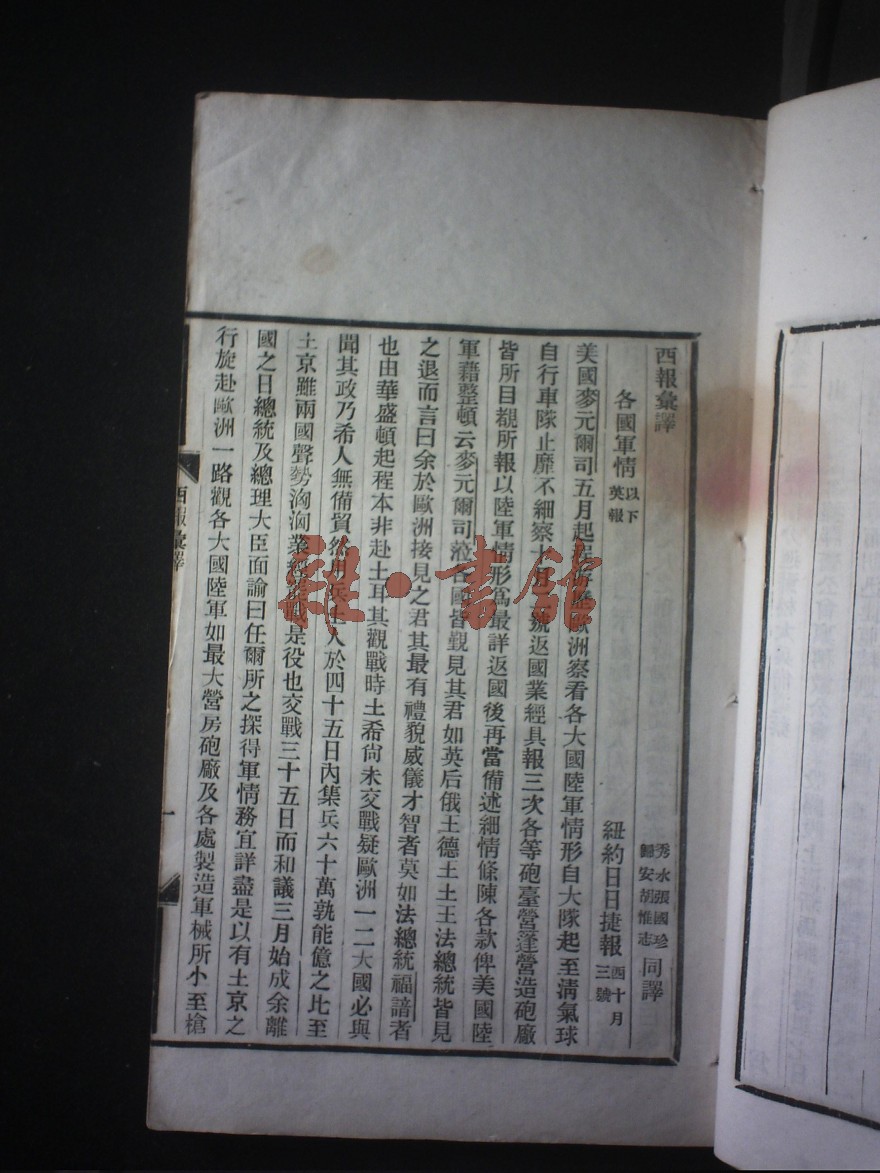 西報彙譯
秀水張國珍
歸安胡惟志
同譯
各國軍情以下英報
紐約日日捷報西十月三號
美國麥元爾司五月起 歐洲察看各大國陸軍情形自大隊起至淸氣球
自行車隊止靡不細察十月 號返國業經具報三次各等砲臺營篷營造砲廠
皆所目覩所報以陸軍情形爲最詳返國後再當備述細情條陳各款俾美國陸
軍藉整頓云麥元爾司涖各國皆覲見其君如英后俄王德王土王法總統皆見
之退而言曰余於歐洲接見之君其最有禮貌威儀才智者莫如法總統福諳者
也由華盛頓起程本非赴土耳其觀戰時土希尙未交戰疑歐洲一二大國必與
聞其政乃希人無備貿然 兵土人於四十五日內集兵六十萬孰能億之比至
土京雖兩國聲勢洶洶業經 戰是役也交戰三十五日而和議三月始成余離
國之日總統及總理大臣面諭曰任爾所之探得軍情務宜詳盡是以有土京之
行旋赴歐洲一路觀各大國陸軍如最大營房砲廠及各處製造軍械所小至槍
西報彙譯
一
雜·書館